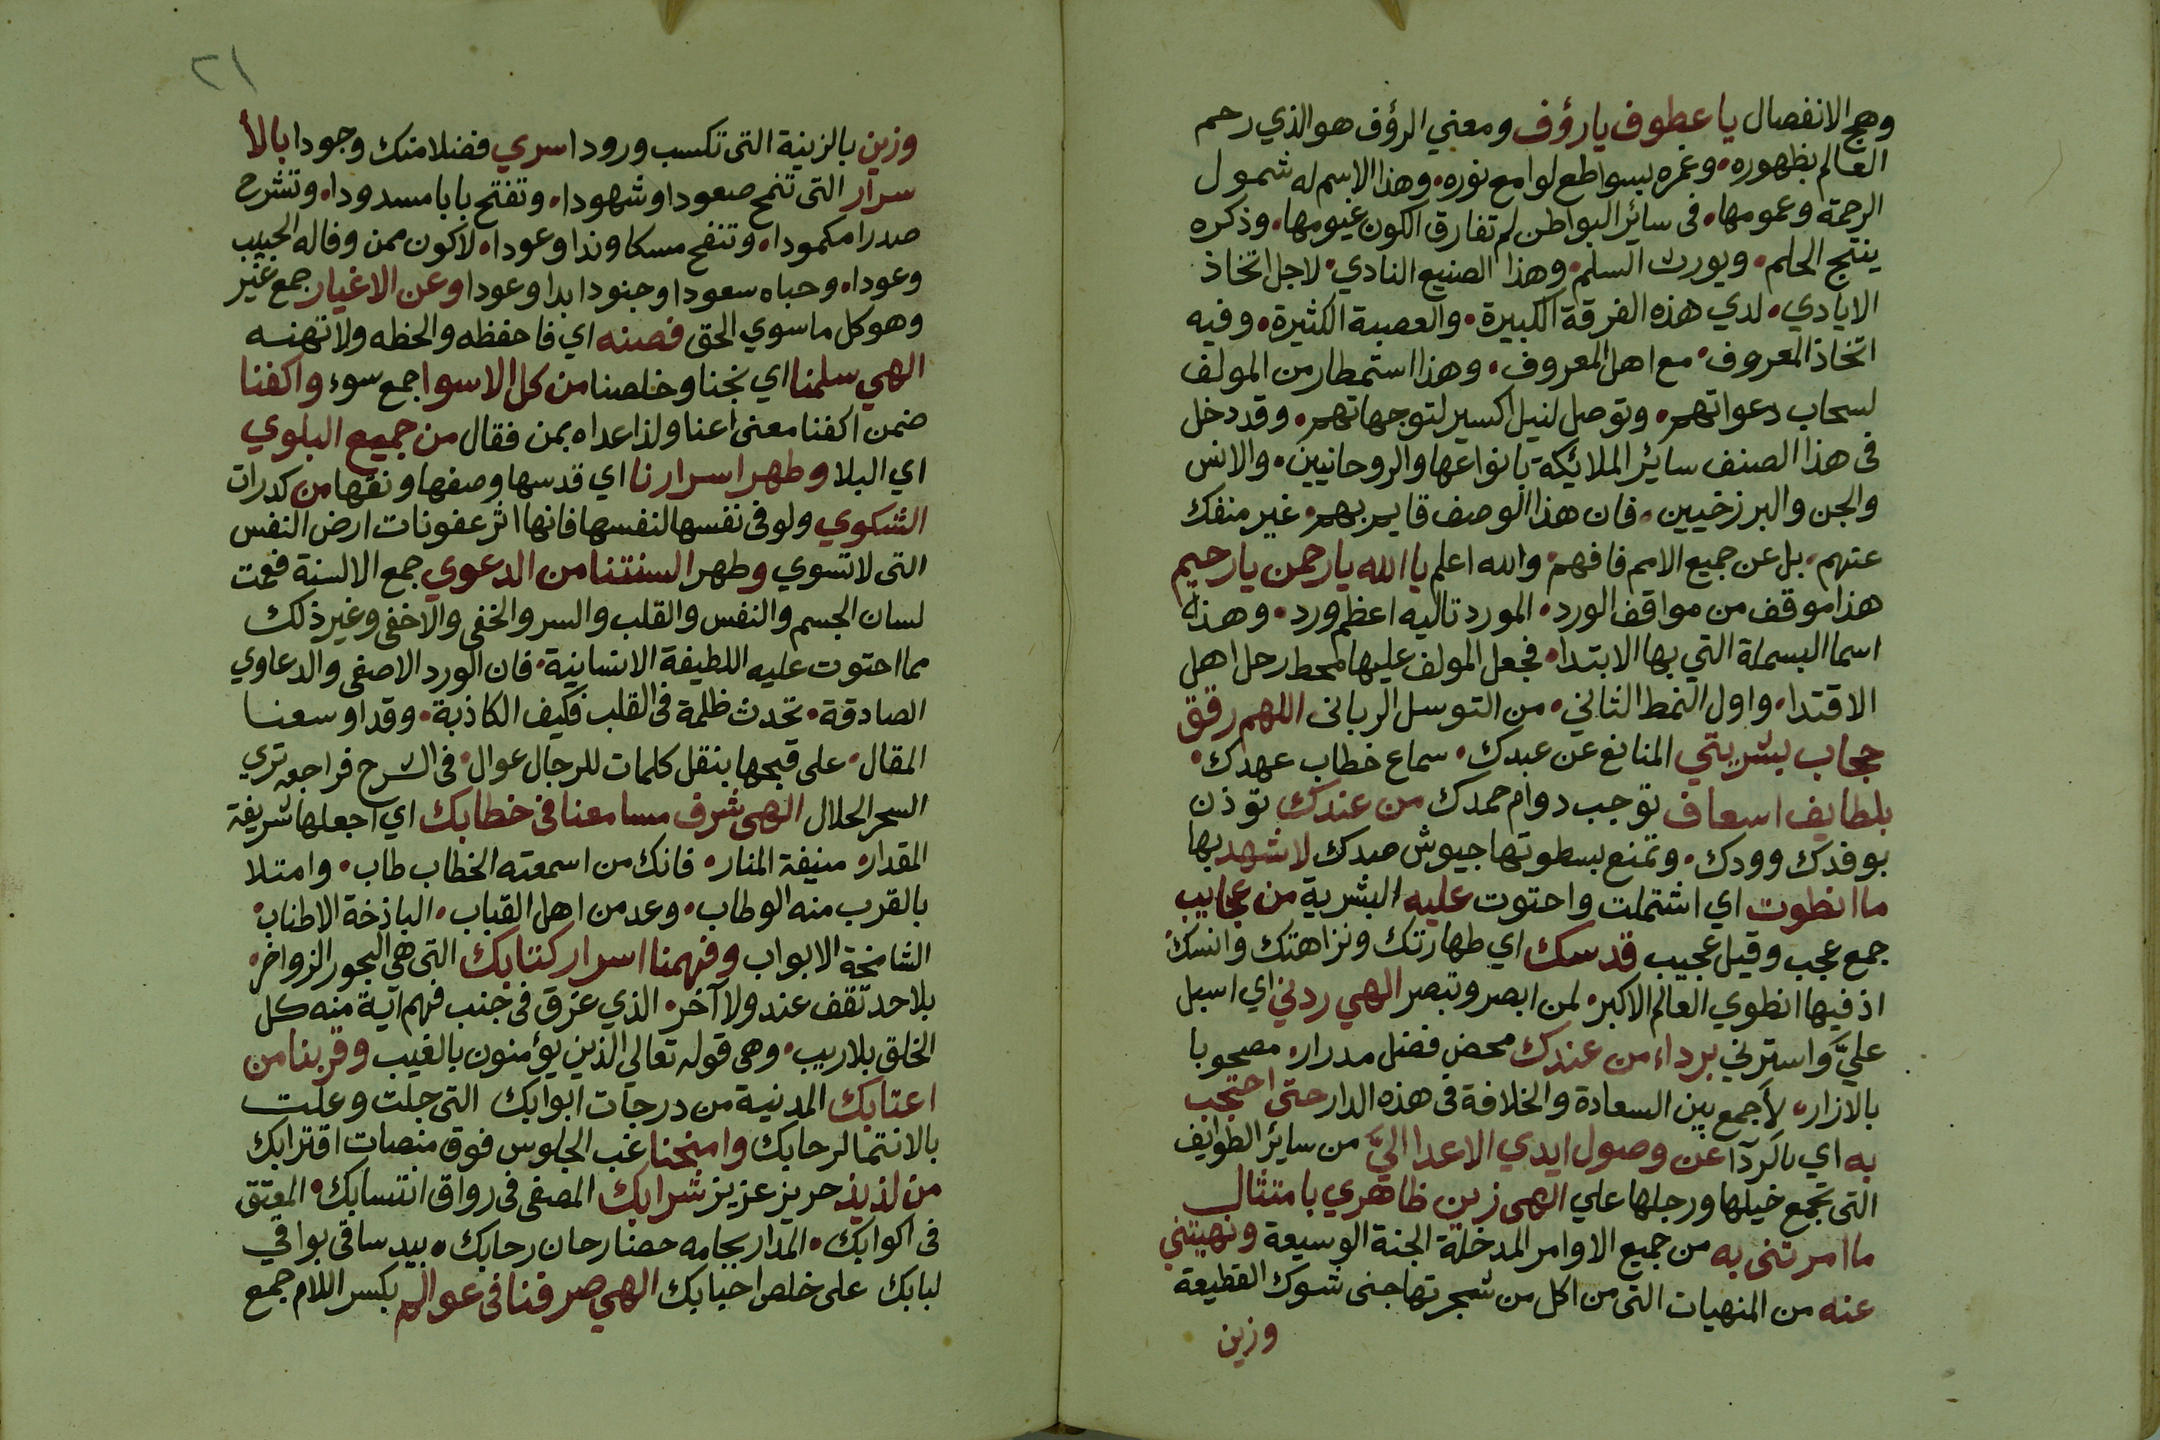 وهج الانفصال يا عطوف يا رؤف ومعني الرؤف هو الذي رحم
العالم بظهوره، وغمره بسواطع لوامع نوره، وهذا الاسم له شمول
الرحمة وعمومها، في سائر البواطن لم تفارق الكون غيومها، وذكره
ينتج الحلم، ويورث السلم، وهذا الصنيع النادي، لاجل اتخاذ
الايادي، لدي هذه الفرقة الكبيرة، والعصبة الكثيرة، وفيه
اتخاذ المعروف، مع اهل المعروف، وهذا استمطار من المولف
لسحاب دعواتهم، وتوصل لنيل اكسير لتوجهاتهم، وقد دخل
في هذا الصنف سائر الملائكة بانواعها والروحانيين، والانس
والجن والبرزخيين، فان هذا الوصف قايم بهم، غير منفك
عنهم، بل عن جميع الامم فافهم، والله اعلم يا الله يا رحمن يا رحيم
هذا موقف من مواقف الورد، المورد تاليه اعظم ورد، وهذه
اسما البسملة التي بها الابتدا، فجعل المولف عليها محط رحل اهل
الاقتدا، واول النمط الثاني، من التوسل الرباني اللهم رقق
حجاب بشريتي المانع عن عبدك، سماع خطاب عهدك،
بلطايف اسعاف توجب دوام حمدك من عندك توذن
بوفدك وودك، وتمنع بسطوتها جيوش صدك لاشهد بها
ما انطوت اي اشتملت واحتوت عليه البشرية من عجايب
جمع عجب وقيل عجيب قدسك اي طهارتك ونزاهتك وانسك
اذ فيها انطوي العالم الاكبر، لمن ابصر وتبصر الهي ردني اي اسبل
عليَّ واسترني برداء من عندك محض فضل مدرار، مصحوبا
بالازار، لأجمع بين السعادة والخلافة في هذه الدار حتى احتجب
به اي بالردآ عن وصول ايدي الاعدا اليَّ من سائر الطوايف
التى تجمع خيلها ورجلها علي الهي زين ظاهري بامتثال
ما امرتني به من جميع الاوامر المدخلة الجنة الوسيعة ونهيتني
عنه من المنهيات التى من اكل من شجرتها جنى شوك القطيعة
وزين
٢١
وزين بالزينة التى تكسب ورودا سري فضلا منك وجودا بالأ
سرار التى تنمح صعودا وشهودا، وتفتح بابا مسدودا، وتشرح
صدرا مكمودا، وتنفح مسكا وندا وعودا، لاكون ممن وفاله الحبيب
وعودا، وحباه سعودا وجنودا ابدا وعودا وعن الاغيار جمع غير
وهو كل ما سوي الحق فصنه اي فاحفظه والحظه ولا تهنه
الهي سلمنا اي نجنا وخلصنا من كل الاسوا جمع سوء واكفنا
ضمن اكفنا معنى اعنا ولذا عداه بمن فقال من جميع البلوي
اي البلا وطهر اسرارنا اي قدسها وصفها ونقها من كدرات
الشكوي ولو في نفسها لنفسها فانها اثر عفونات ارض النفس
التى لا تسوي وطهر السنتنا من الدعوي جمع الالسنة فعمت
لسان الجسم والنفس والقلب والسر والخفى والاخفى وغير ذلك
مما احتوت عليه اللطيفة الانسانية، فان الورد الاصفى والدعاوي
الصادقة، تحدث ظلمة في القلب فكيف الكاذبة، وقد اوسعنا
المقال، على قبحها بنقل كلمات للرجال عوال، في الشرح فراجعه تري
السحر الحلال الهي شرف مسامعنا في خطابك اي اجعلها شريفة
المقدار، منيفة المنار، فانك من اسمعته الخطاب طاب، وامتلا
بالقرب منه الوطاب، وعد من اهل القباب، الباذخة الاطناب،
الشامخة الابواب وفهمنا اسرار كتابك التى هي البحور الزواخر،
بلا حد تقف عند ولا آخر، الذي غرق في جنب فهم آية منه كل
الخلق بلا ريب، وهي قوله تعالي الذين يؤمنون بالغيب وقربنا من
اعتابك المدنية من درجات ابوابك التى جلت وعلت
بالانتما لرحابك وامنحنا غب الجلوس فوق منصات اقترابك
من لذيذ حريز عزيز شرابك المصفى في رواق انتسابك، المعتق
في اكوابك، المدار بجامه حصنا رحان رحابك، بيد ساقى بواقي
لبابك على خلص احبابك الهي صرفنا في عوالم بكسر اللام جمع